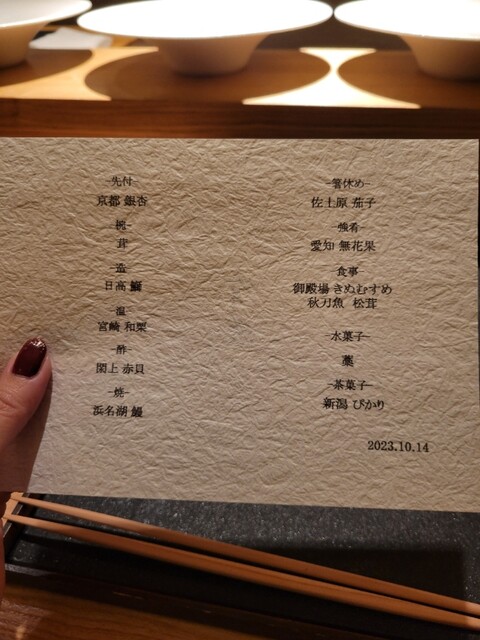 -先付-
京都 銀杏
-椀-
茸
-造-
日高 鰤
-温-
宮崎 和栗
-酢-
閖上 赤貝
-焼-
浜名湖 鰻
-箸休め-
佐土原 茄子
-強肴-
愛知 無花果
-食事-
御殿場 きぬむすめ
秋刀魚 松茸
-水菓子-
藁
-茶菓子-
新潟 ぴかり
2023.10.14